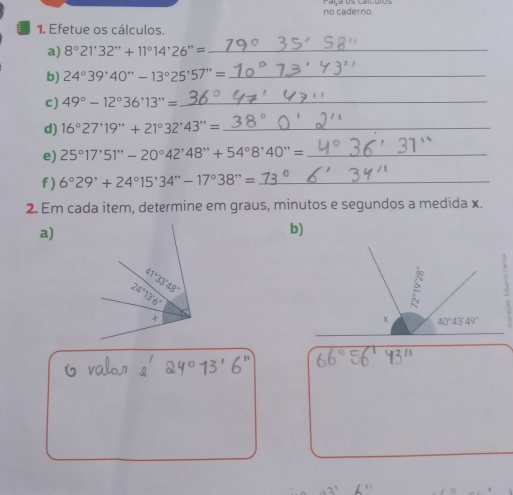 Faça os cálculos
no caderno.
1. Efetue os cálculos.
a) 8°21'32" + 11°14'26" = 19° 35' 58"
b) 24°39'40" – 13°25'57" = 10° 13' 43"
c) 49° – 12°36'13" = 36° 47' 47"
d) 16°27'19" + 21°32'43" = 38° 0' 2"
e) 25°17'51" – 20°42'48" + 54°8'40" = 4° 36' 31"
f) 6°29' + 24°15'34" – 17°38" = 13° 6' 34"
2. Em cada item, determine em graus, minutos e segundos a medida x.
a)
b)
41°33'48"
24°13'6"
x
72°19'28"
x
40°43'49"
O valor é 24° 13' 6"
66° 56' 43"